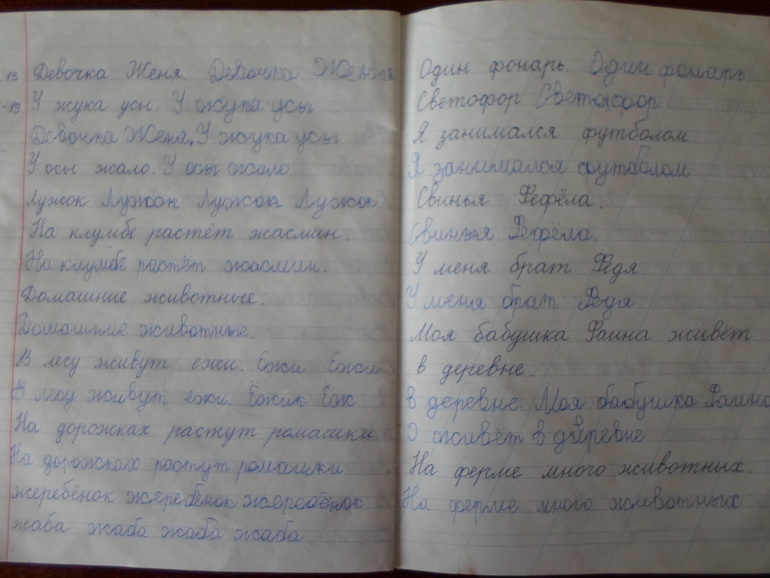 Девочка Женя. Девочка Женя
У жука усы. У жука усы
Девочка Женя. У жука усы
У осы жало. У осы жало
Лужок Лужок Лужок Лужок
На клумбе растёт жасмин.
На клумбе растёт жасмин.
Домашние животные.
Домашние животные.
В лесу живут ежи. Ежи
В лесу живут ежи. Ёжик Ёж
На дорожках растут ромашки
На дорожках растут ромашки
жеребёнок жеребёнок жеребёнок
жаба жаба жаба жаба
Один фонарь. Один фонарь
Светофор Светофор
Я занимался футболом
Я занимался футболом
Свинья Фефёла.
Свинья Фефёла.
У меня брат Федя
У меня брат Федя
Моя бабушка Фаина живёт
в деревне.
в деревне. Моя бабушка Фаина
живёт в деревне
На ферме много животных.
На ферме много животных